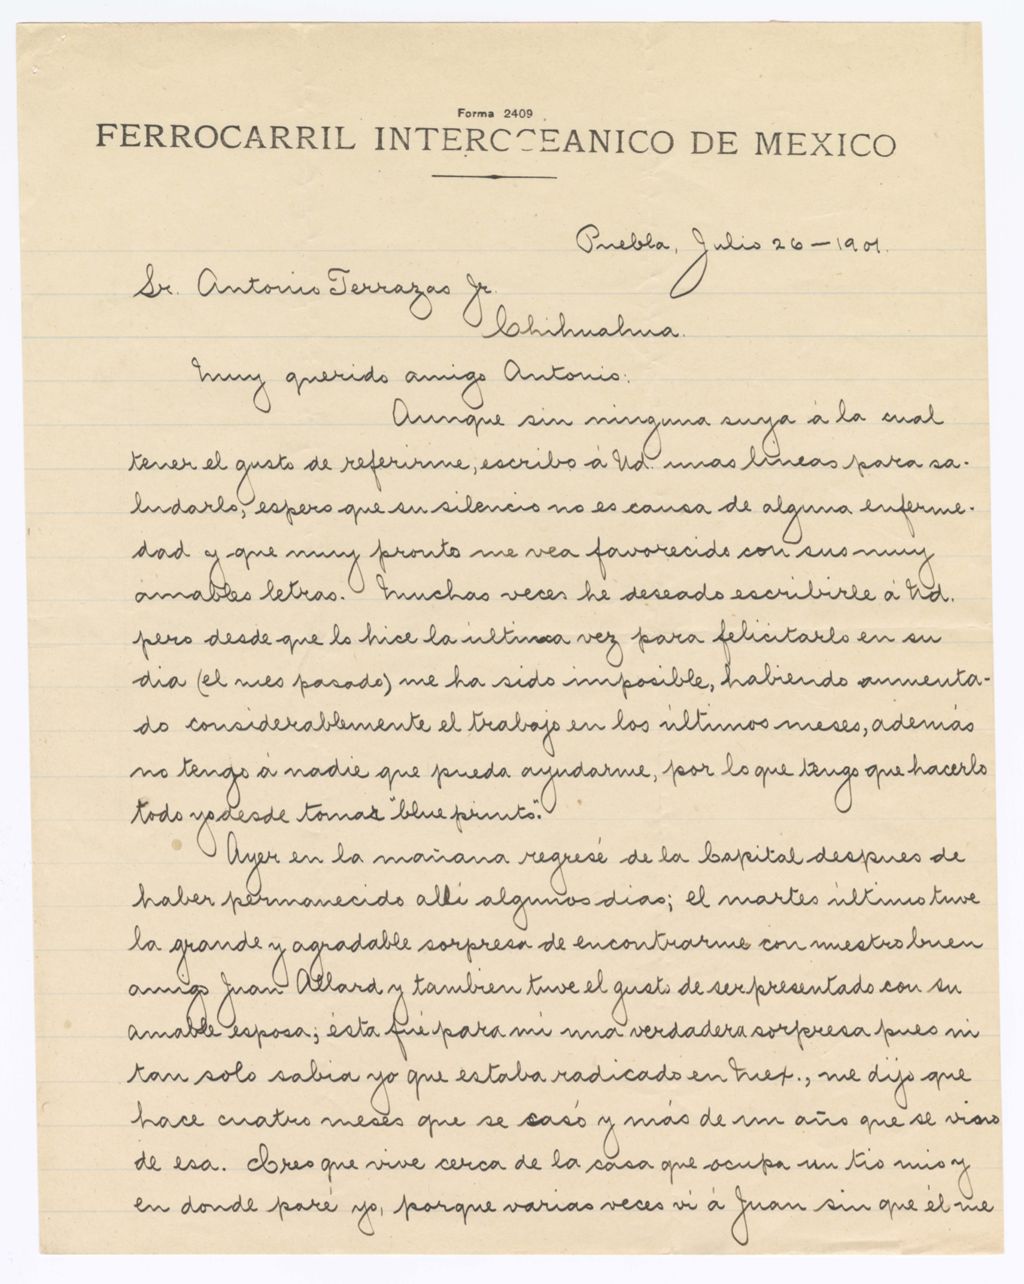 Forma 2409
FERROCARRIL INTEROCEANICO DE MEXICO
Puebla, Julio 26-1901.
Sr. Antonio Terrazas Jr.
Chihuahua.
Muy querido amigo Antonio:
Aunque sin ninguna suya á la cual
tener el gusto de referirme, escribo á Ud. unas líneas para sa-
ludarlo, espero que su silencio no es causa de alguna enferme-
dad y que muy pronto me vea favorecido con sus muy
amables letras. Muchas veces he deseado escribirle á Ud.
pero desde que lo hice la última vez para felicitarlo en su
dia (el mes pasado) me ha sido imposible, habiendo aumenta-
do considerablemente el trabajo en los últimos meses, además
no tengo á nadie que pueda ayudarme, por lo que tengo que hacerlo
todo yo desde tomar "blue prints".
Ayer en la mañana regresé de la Capital despues de
haber permanecido allí algunos dias; el martes último tuve
la grande y agradable sorpresa de encontrarme con nuestro buen
amigo Juan Allard y tambien tuve el gusto de ser presentado con su
amable esposa; ésta fué para mí una verdadera sorpresa pues ni
tan solo sabia yo que estaba radicado en Mex., me dijo que
hace cuatro meses que se casó y más de un año que se vino
de esa. Creo que vive cerca de la casa que ocupa un tio mio y
en donde paré yo, porque varias veces ví á Juan sin que él me